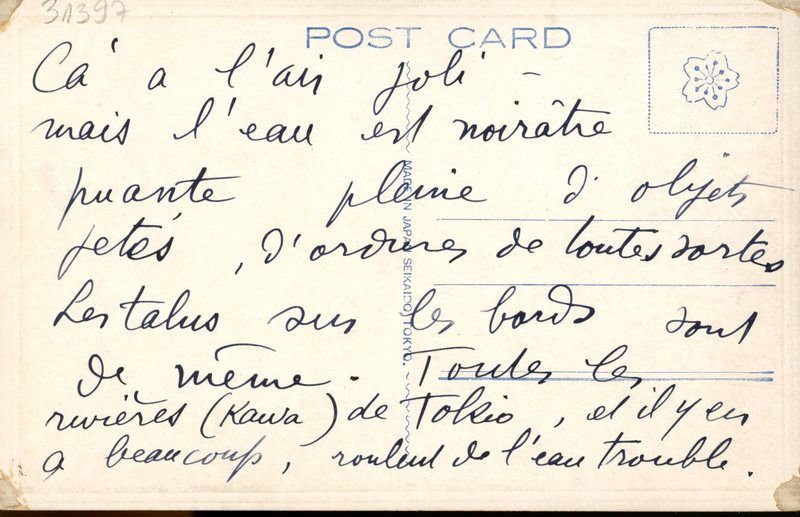 31397
POST CARD
Ca' a l'air joli –
mais l'eau est noirâtre
puante pleine d'objets
jetés, d'ordures de toutes sortes
Les talus sur les bords sont
de même. Toutes les
rivières (Kawa) de Tokio, et il y en
a beaucoup, roulent de l'eau trouble.
MADE IN JAPAN SEIKAIDO, TOKYO.